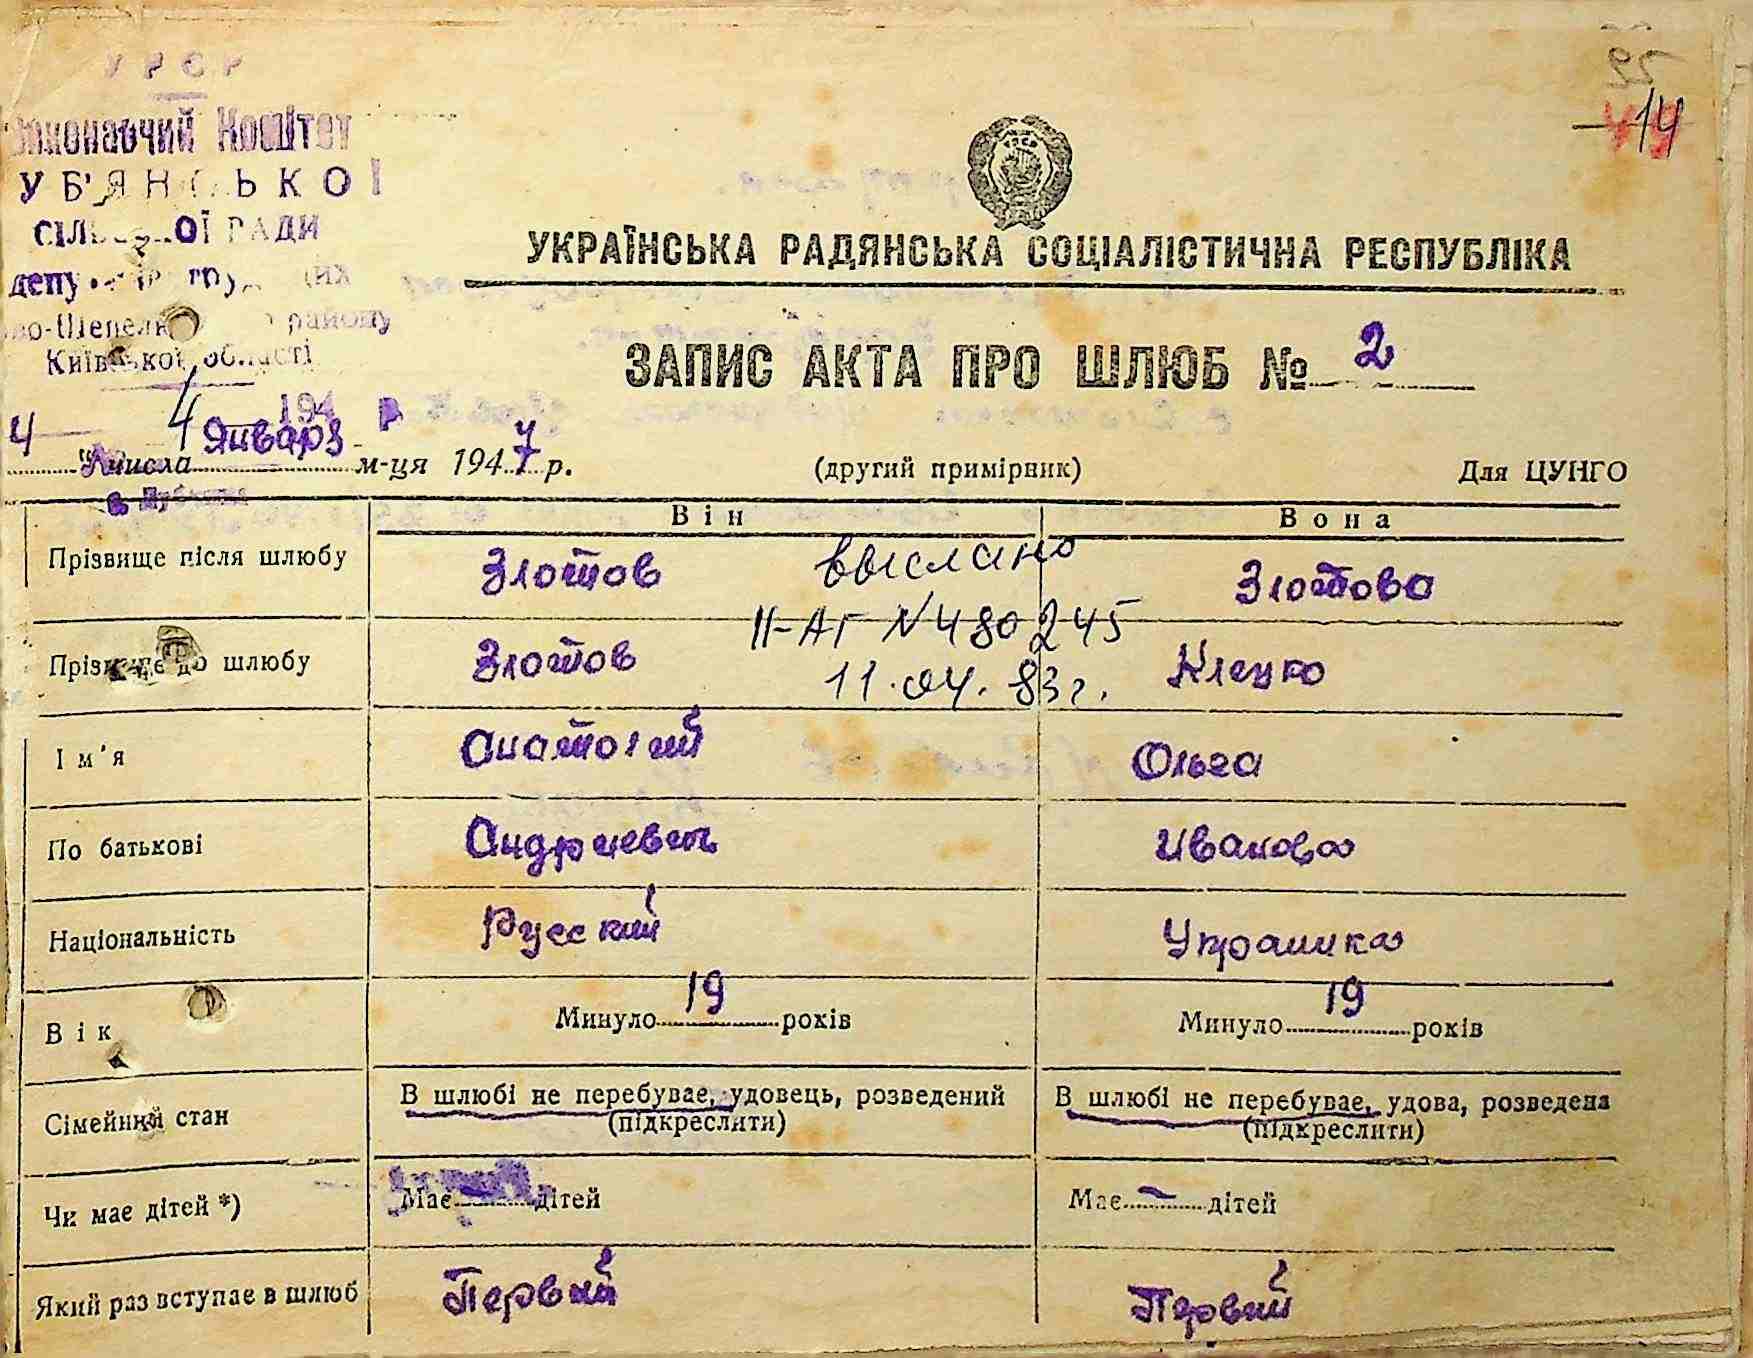 УРСР
Виконавчий Комітет
УБ'ЯНСЬКОЇ
СІЛЬСЬКОЇ РАДИ
депу
району
Київської області
4 194 р
25
14
УРСР
УКРАЇНСЬКА РАДЯНСЬКА СОЦІАЛІСТИЧНА РЕСПУБЛІКА
ЗАПИС АКТА ПРО ШЛЮБ № 2
4 числа Января м-ця 1947 р. (другий примірник) Для ЦУНГО
Він Вона
Прізвище після шлюбу Злотов Злотова
выслано
II-АГ №480245
11.04.83г.
Прізвище до шлюбу Злотов Клецко
Ім'я Анатолий Ольга
По батькові Андреевич Ивановна
Національність Русский Украинка
Вік Минуло 19 років Минуло 19 років
Сімейний стан В шлюбі не перебуває, удовець, розведений В шлюбі не перебуває, удова, розведена
(підкреслити) (підкреслити)
Чи має дітей *) Має дітей Має – дітей
Який раз вступає в шлюб Первый Первий